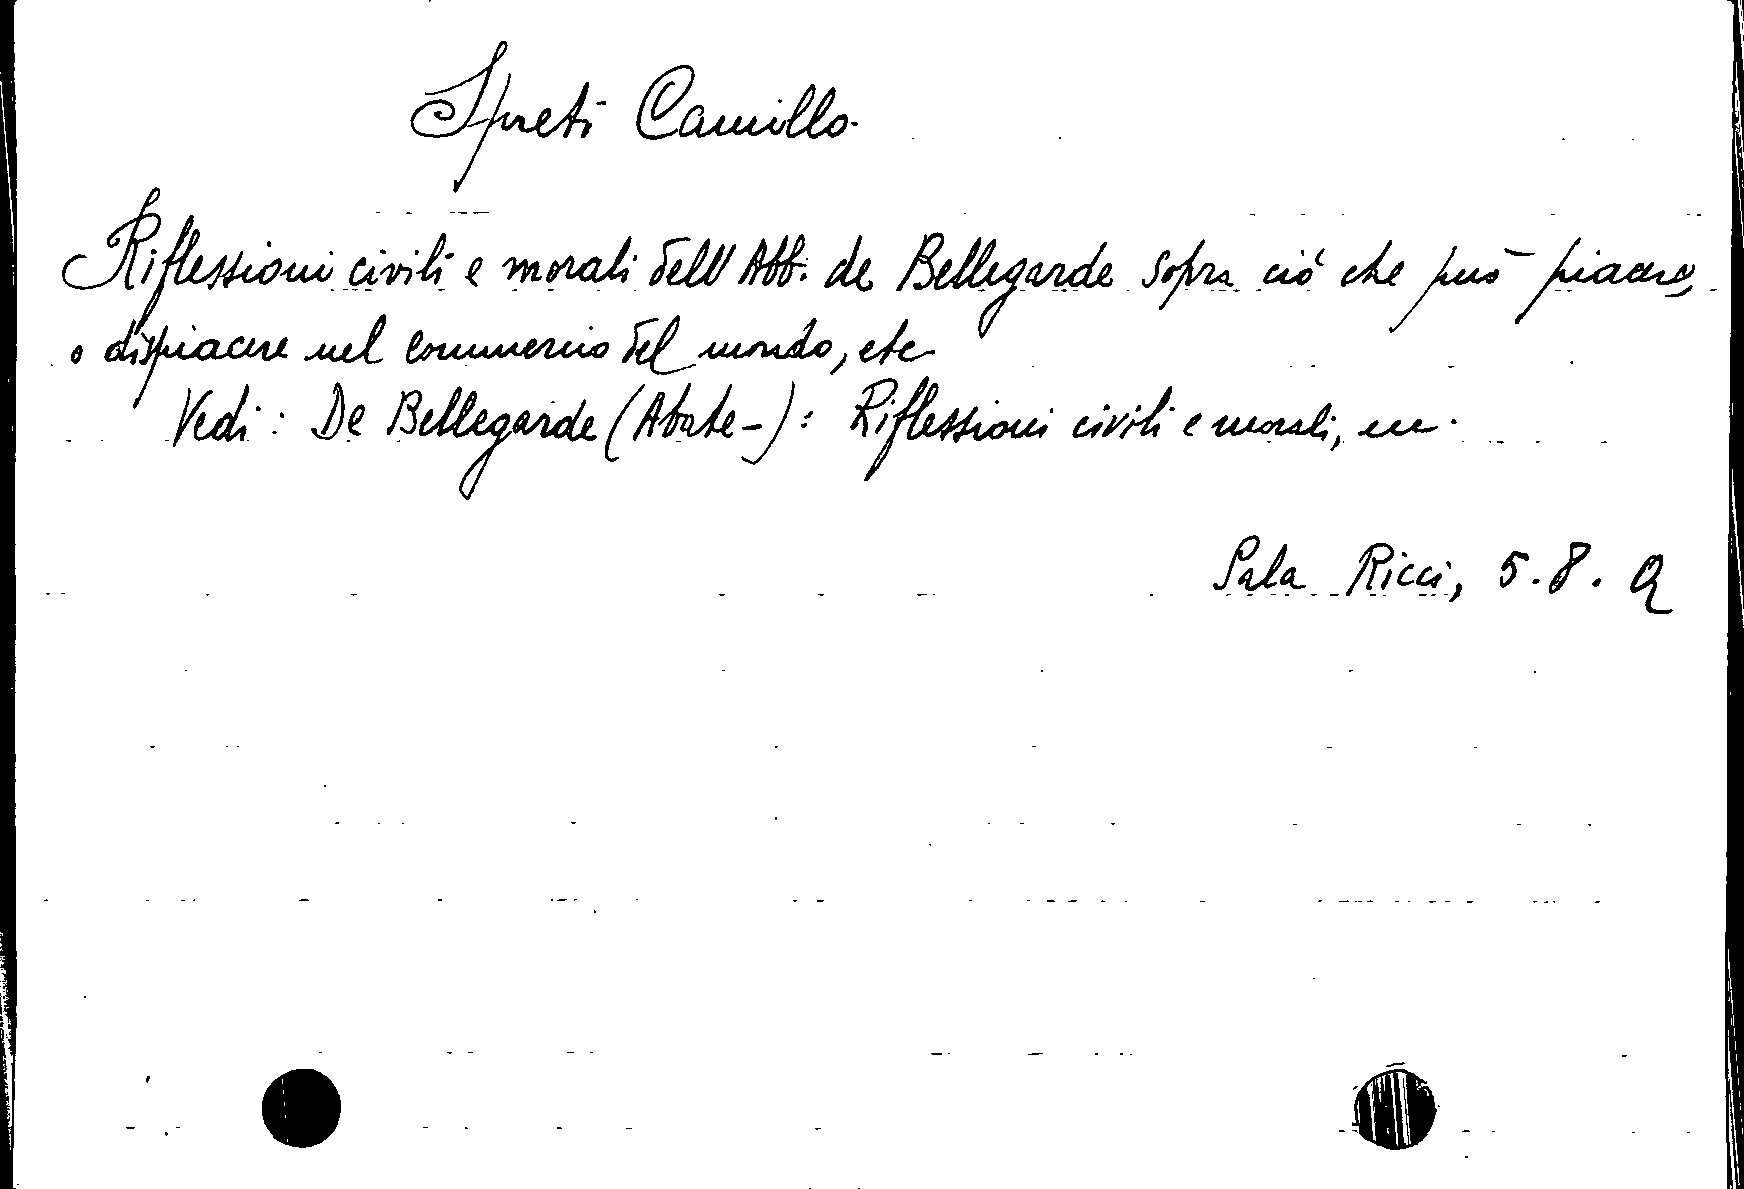 Spreti Camillo
Riflessioni civili e morali dell'Abb. de Bellegarde sopra ciò che può piacere,
o dispiacere nel commercio del mondo, etc
Vedi: De Bellegarde (Abate-): Riflessioni civili e morali,
Sala Ricci, 5. 8. Q